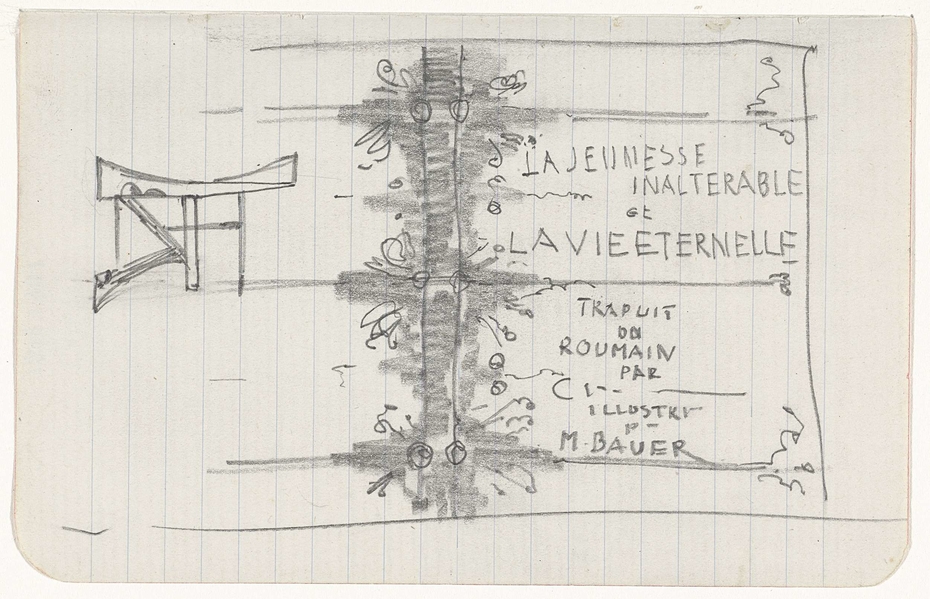 LA JEUNESSE
INALTERABLE
et
LA VIE ETERNELLE
TRADUIT
DU
ROUMAIN
PAR
C
ILLUSTR
P
M. BAUER